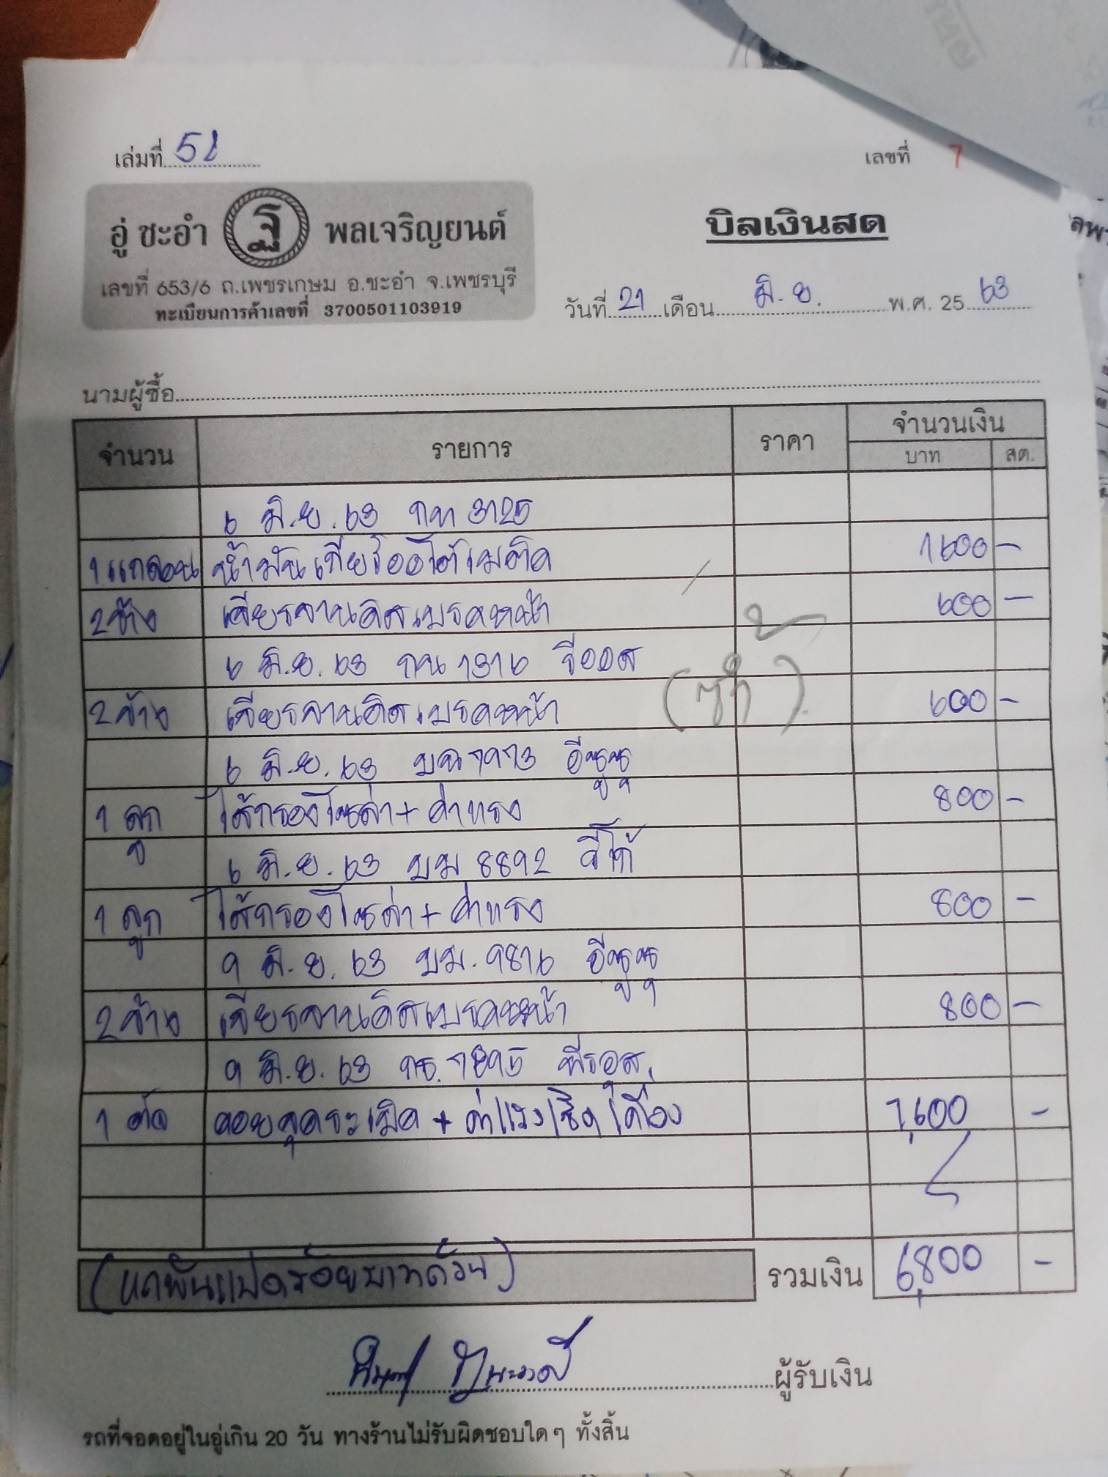 เล่มที่ 51
เลขที่ 7
อู่ ชะอำ ฐ พลเจริญยนต์
บิลเงินสด
เลขที่ 653/6 ถ.เพชรเกษม อ.ชะอำ จ.เพชรบุรี
ทะเบียนการค้าเลขที่ 3700501103919
วันที่ 21 เดือน มิ.ย. พ.ศ. 25 63
นามผู้ซื้อ
จำนวน รายการ ราคา จำนวนเงิน
บาท สต.
6 มิ.ย. 63 กท 3125
1 แกลอน น้ำมันเกียร์ออโต้เมติค 1600 -
2 ข้าง เจียรจานดิสเบรคหน้า 600 -
6 มิ.ย. 63 กน 1316 วีออส
(ซ้ำ)
2 ข้าง เจียรจานดิสเบรคหน้า 600 -
6 มิ.ย. 63 1973 อีซูซุ
1 ลูก ไส้กรองโซล่า + ค่าแรง 800 -
6 มิ.ย. 63 บม 8892 วีโก้
1 ลูก ไส้กรองโซล่า + ค่าแรง 800 -
9 มิ.ย. 63 บม. 9816 อีซูซุ
2 ข้าง เจียรจานดิสเบรคหน้า 800 -
9 มิ.ย. 63 กธ. 7895
1 ตัว คอยจุดระเบิด + ค่าแรงเช็คเครื่อง 1,600 -
(หกพันแปดร้อยบาทถ้วน) รวมเงิน 6,800 -
ผู้รับเงิน
รถที่จอดอยู่ในอู่เกิน 20 วัน ทางร้านไม่รับผิดชอบใดๆ ทั้งสิ้น